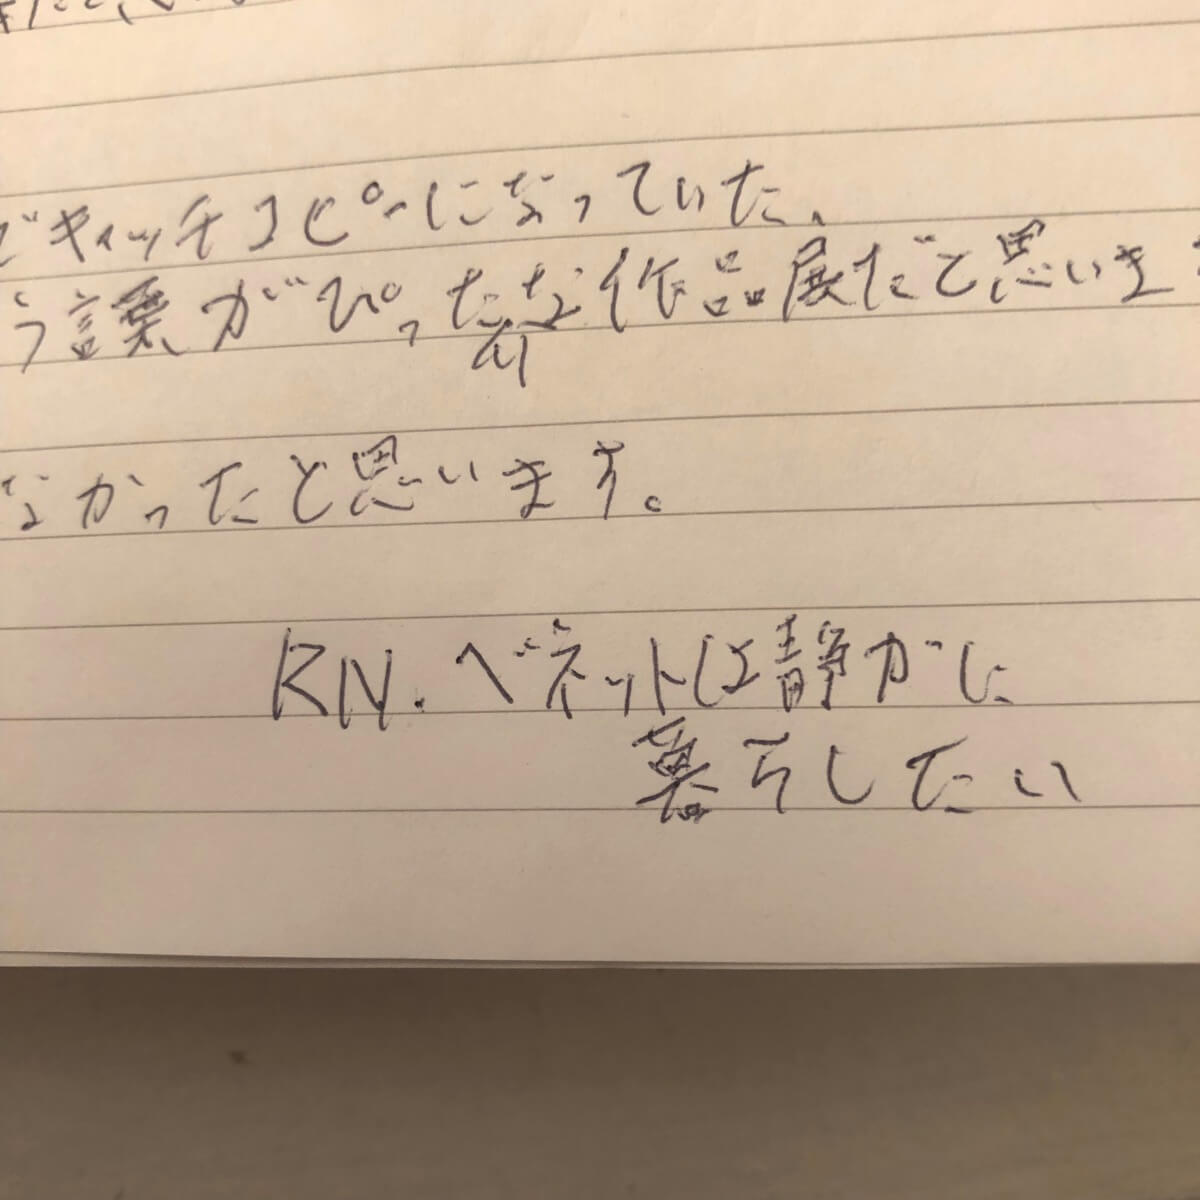 でキャッチコピーになっていた、
う言葉がぴったりな作品展だと思いま
なかったと思います。
RN.ベネットは静かに
暮らしたい